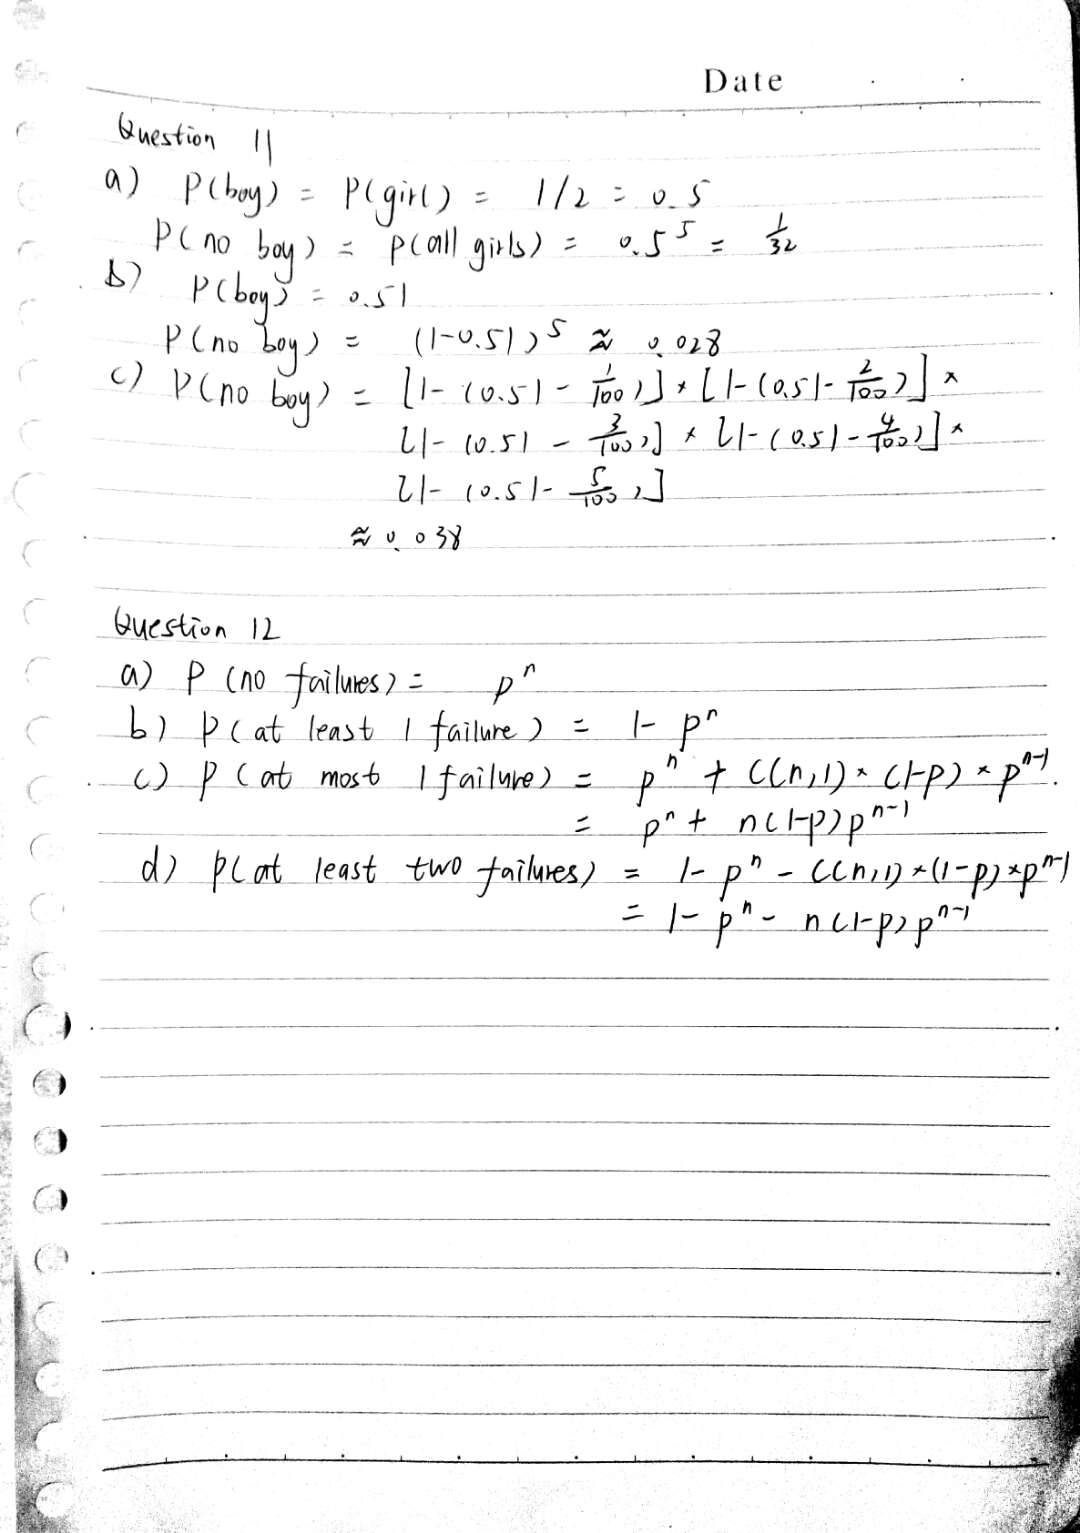 Date
Question 11
a) P(boy) = P(girl) = 1/2 = 0.5
P(no boy) = P(all girls) = 0.5⁵ = 1/32
b) P(boy) = 0.51
P(no boy) = (1-0.51)⁵ ≈ 0.028
c) P(no boy) = [1-(0.51-1/100)]×[1-(0.51-2/100)]×
[1-(0.51-3/100)]×[1-(0.51-4/100)]×
[1-(0.51-5/100)]
≈ 0.038
Question 12
a) P(no failures) = pⁿ
b) P(at least 1 failure) = 1-pⁿ
c) P(at most 1 failure) = pⁿ + C(n,1)×(1-p)×pⁿ⁻¹.
= pⁿ + n(1-p)pⁿ⁻¹
d) P(at least two failures) = 1-pⁿ-C(n,1)×(1-p)×pⁿ⁻¹
= 1-pⁿ-n(1-p)pⁿ⁻¹